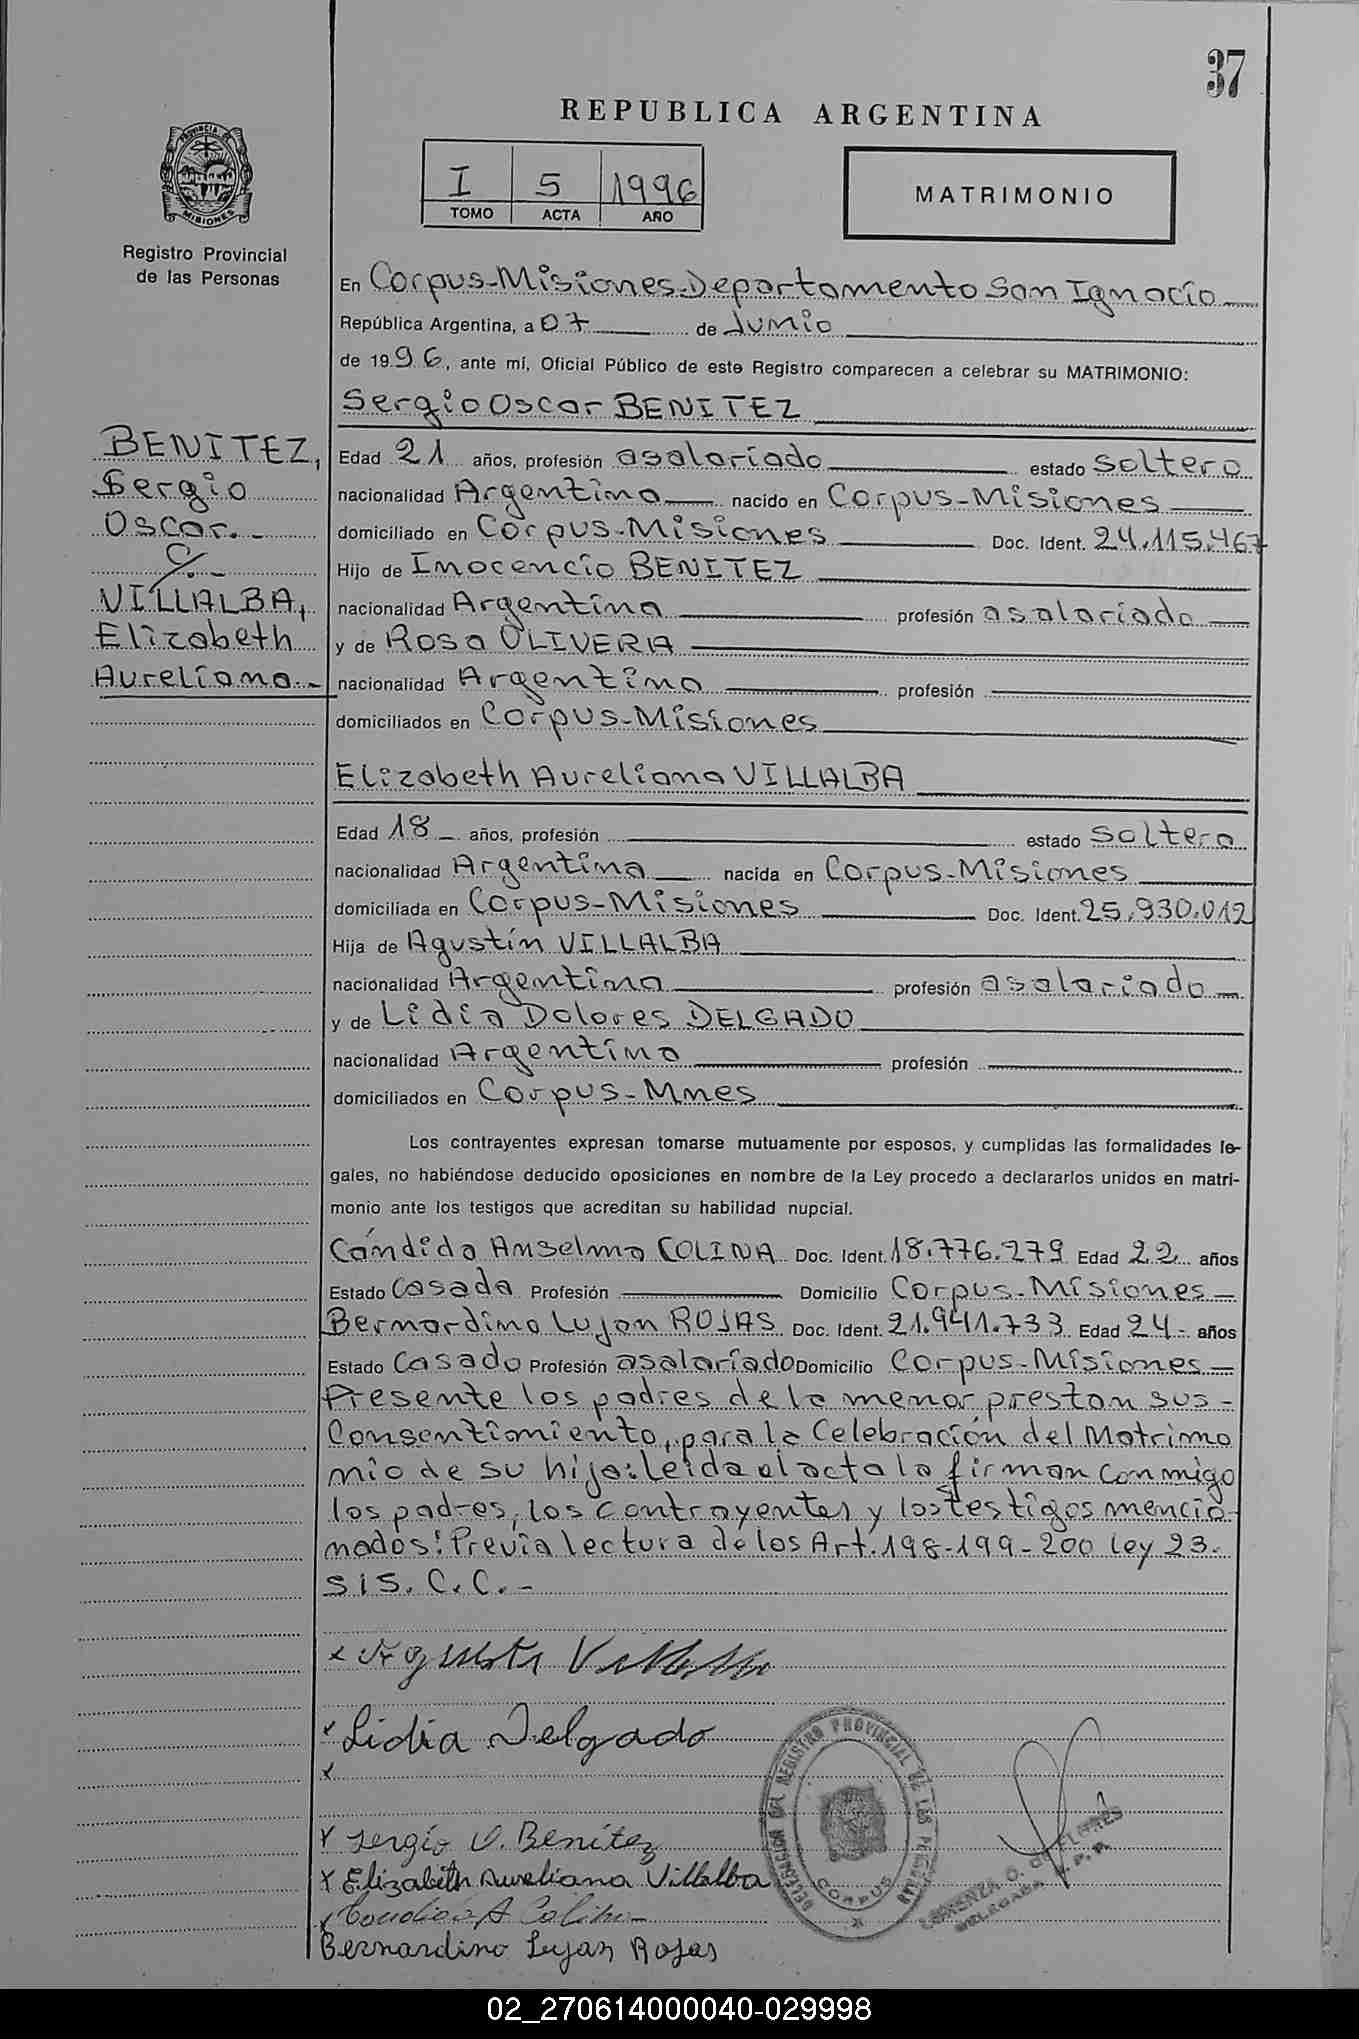 37
REPUBLICA ARGENTINA
I 5 1996
TOMO ACTA AÑO
MATRIMONIO
PROVINCIA DE MISIONES
Registro Provincial
de las Personas
BENITEZ,
Sergio
Oscar.-
c/.-
VILLALBA,
Elizabeth
Aureliana.-
En Corpus-Misiones-Departamento San Ignacio
República Argentina, a 07 de Junio
de 1996, ante mí, Oficial Público de este Registro comparecen a celebrar su MATRIMONIO:
Sergio Oscar BENITEZ
Edad 21 años, profesión asalariado estado soltero
nacionalidad Argentina nacido en Corpus-Misiones
domiciliado en Corpus-Misiones Doc. Ident. 24.115.467
Hijo de Inocencio BENITEZ
nacionalidad Argentina profesión asalariado
y de Rosa OLIVERA
nacionalidad Argentina profesión
domiciliados en Corpus-Misiones
Elizabeth Aureliana VILLALBA
Edad 18 años, profesión estado soltera
nacionalidad Argentina nacida en Corpus-Misiones
domiciliada en Corpus-Misiones Doc. Ident. 25.930.012
Hija de Agustín VILLALBA
nacionalidad Argentina profesión asalariado
y de Lidia Dolores DELGADO
nacionalidad Argentina profesión
domiciliados en Corpus-Mnes
Los contrayentes expresan tomarse mutuamente por esposos, y cumplidas las formalidades le-
gales, no habiéndose deducido oposiciones en nombre de la Ley procedo a declararlos unidos en matri-
monio ante los testigos que acreditan su habilidad nupcial.
Cándida Anselma COLINA Doc. Ident. 18.776.279 Edad 22 años
Estado Casada Profesión Domicilio Corpus-Misiones
Bernardino Lujan ROJAS Doc. Ident. 21.941.733 Edad 24- años
Estado Casado Profesión asalariado Domicilio Corpus-Misiones
Presente los padres de la menor prestan sus-
Consentimiento, para la Celebración del Matrimo
nio de su hija: Leida el acta la firman conmigo
los padres, los contrayentes y los testigos mencio-
nados: Previa lectura de los Art. 198-199-200 Ley 23.
515. C.C.-
x Agustin Villalba
x Lidia Delgado
x
x Sergio O. Benítez
x Elizabeth Aureliana Villalba
Candida A Colina
Bernardino Lujan Rojas
DELEGACION DEL REGISTRO PROVINCIAL DE LAS PERSONAS
CORPUS
LORENZA O.
DELEGADA R.P.P.
02_270614000040-029998